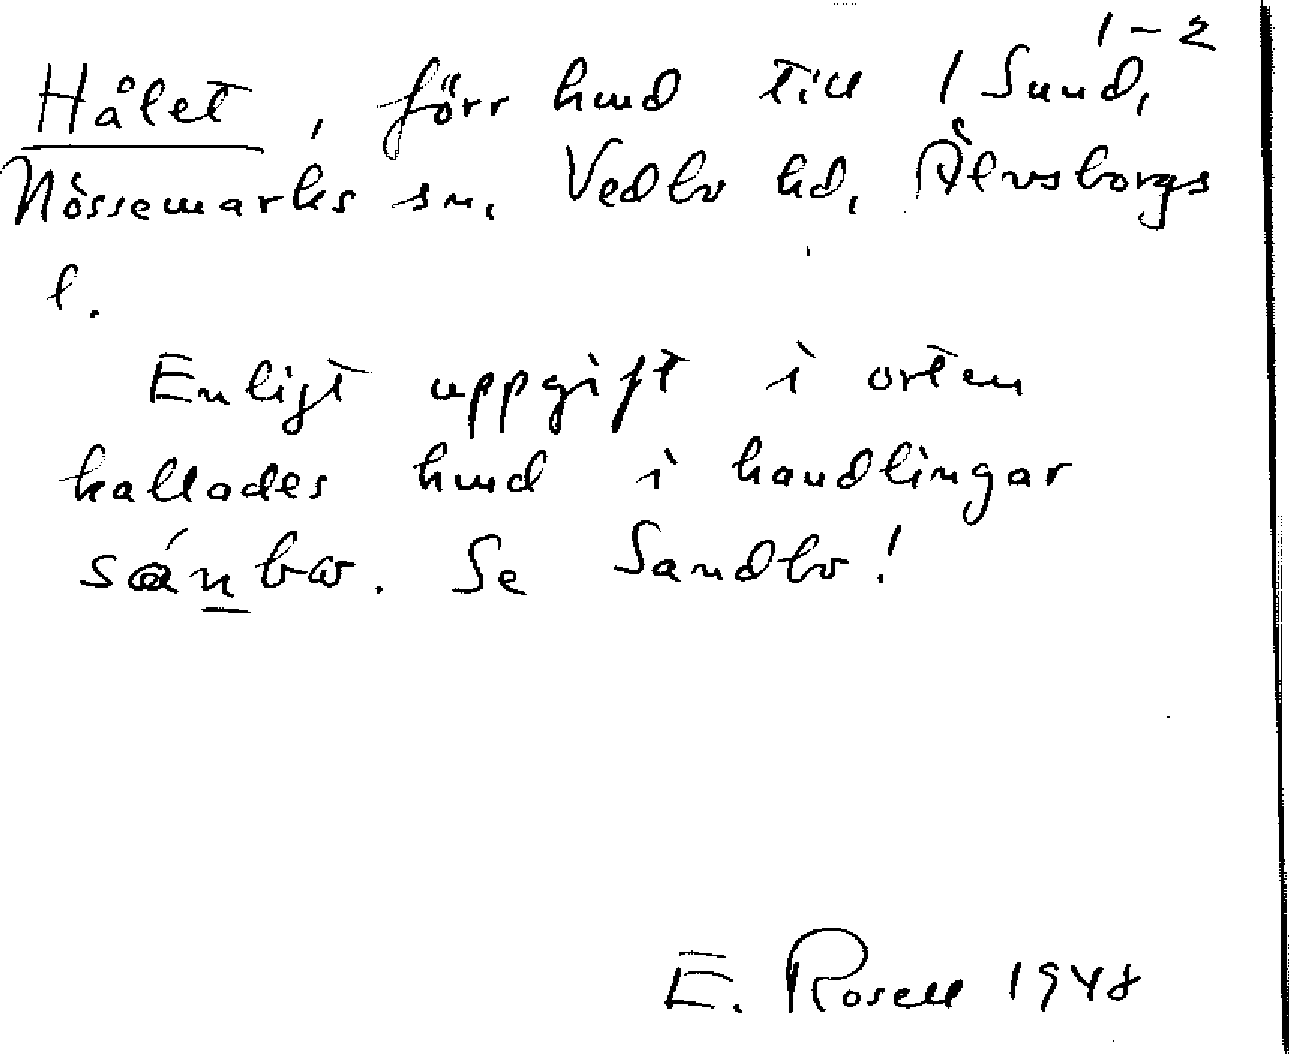 1-2
Hålet, förr hmd till 1 Sund,
Nössemarks sn, Vedbo hd, Älvsborgs
l.
Enligt uppgift i orten
kallades hmd i handlingar
Se Sandbo!
E. Rosell 1948